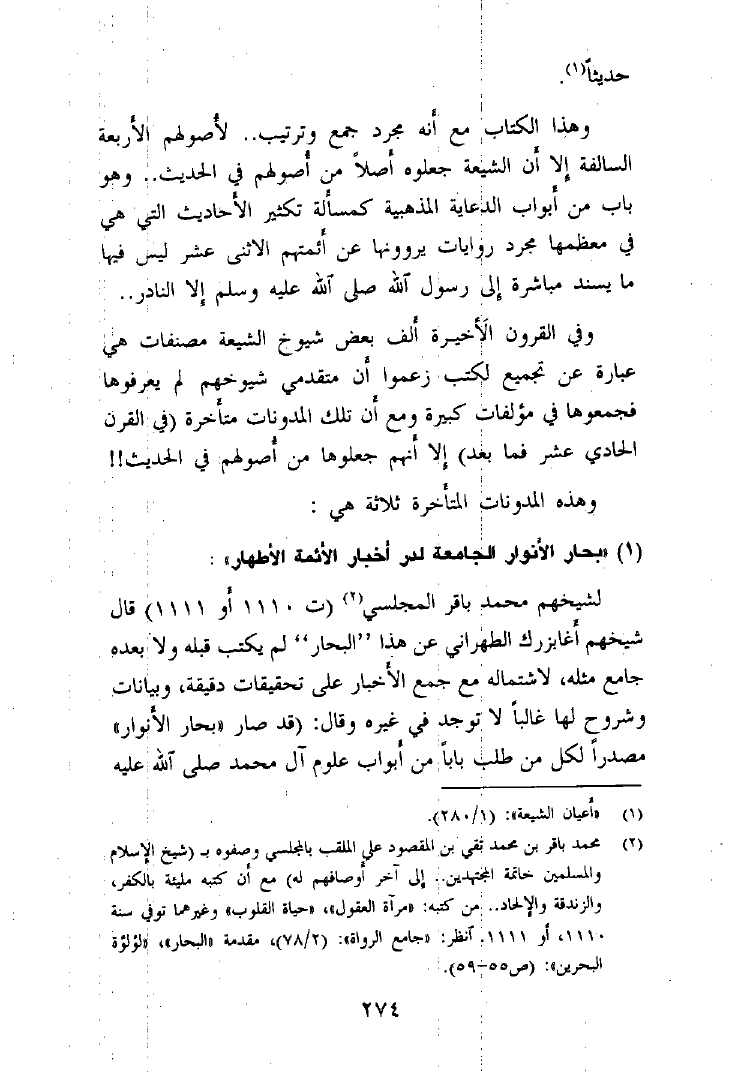 حديثاً(١).
وهذا الكتاب مع أنه مجرد جمع وترتيب.. لأصولهم الأربعة
السالفة إلا أن الشيعة جعلوه أصلاً من أصولهم في الحديث.. وهو
باب من أبواب الدعاية المذهبية كمسألة تكثير الأحاديث التي هي
في معظمها مجرد روايات يروونها عن أئمتهم الاثنى عشر ليس فيها
ما يسند مباشرة إلى رسول الله صلى الله عليه وسلم إلا النادر..
وفي القرون الأخيرة ألف بعض شيوخ الشيعة مصنفات هي
عبارة عن تجميع لكتب زعموا أن متقدمي شيوخهم لم يعرفوها
فجمعوها في مؤلفات كبيرة ومع أن تلك المدونات متأخرة (في القرن
الحادي عشر فما بعد) إلا أنهم جعلوها من أصولهم في الحديث!!
وهذه المدونات المتأخرة ثلاثة هي :
(١) «بحار الأنوار الجامعة لدر أخبار الأئمة الأطهار» :
لشيخهم محمد باقر المجلسي(٢) (ت ١١١٠ أو ١١١١) قال
شيخهم أغابزرك الطهراني عن هذا "البحار" لم يكتب قبله ولا بعده
جامع مثله، لاشتماله مع جمع الأخبار على تحقيقات دقيقة، وبيانات
وشروح لها غالباً لا توجد في غيره وقال: (قد صار «بحار الأنوار»
مصدراً لكل من طلب باباً من أبواب علوم آل محمد صلى الله عليه
(١) «أعيان الشيعة»: (٢٨٠/١).
(٢) محمد باقر بن محمد تقي بن المقصود علي الملقب بالمجلسي وصفوه بـ (شيخ الإسلام
والمسلمين خاتمة المجتهدين.. إلى آخر أوصافهم له) مع أن كتبه مليئة بالكفر،
والزندقة والإلحاد.. من كتبه: «مرآة العقول»، «حياة القلوب» وغيرهما توفي سنة
١١١٠، أو ١١١١. انظر: «جامع الرواة»: (٧٨/٢)، مقدمة «البحار»، «لؤلؤة
البحرين»: (ص٥٥-٥٩).
٢٧٤